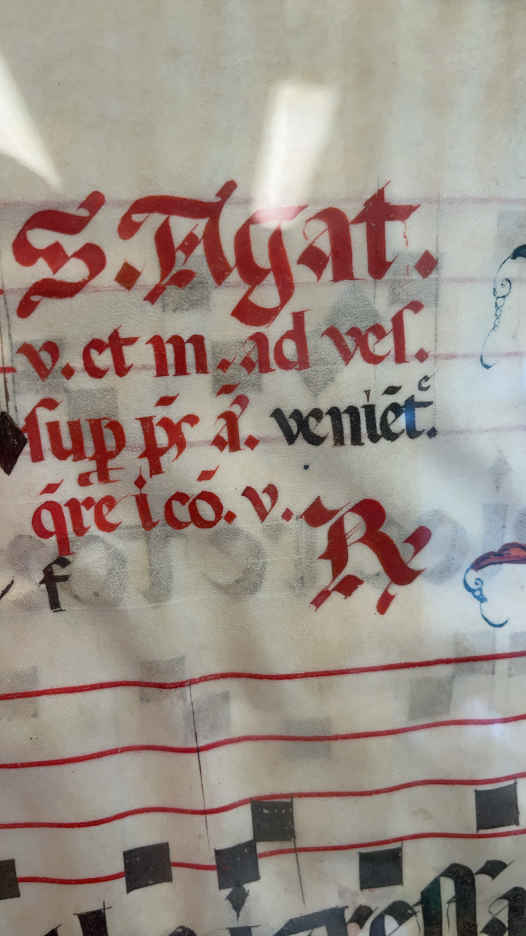 S. Agat.
v. et m. ad veſ.
ſup ps̄ ā. veniēt ͨ.
q̄re i cō. v. R
f